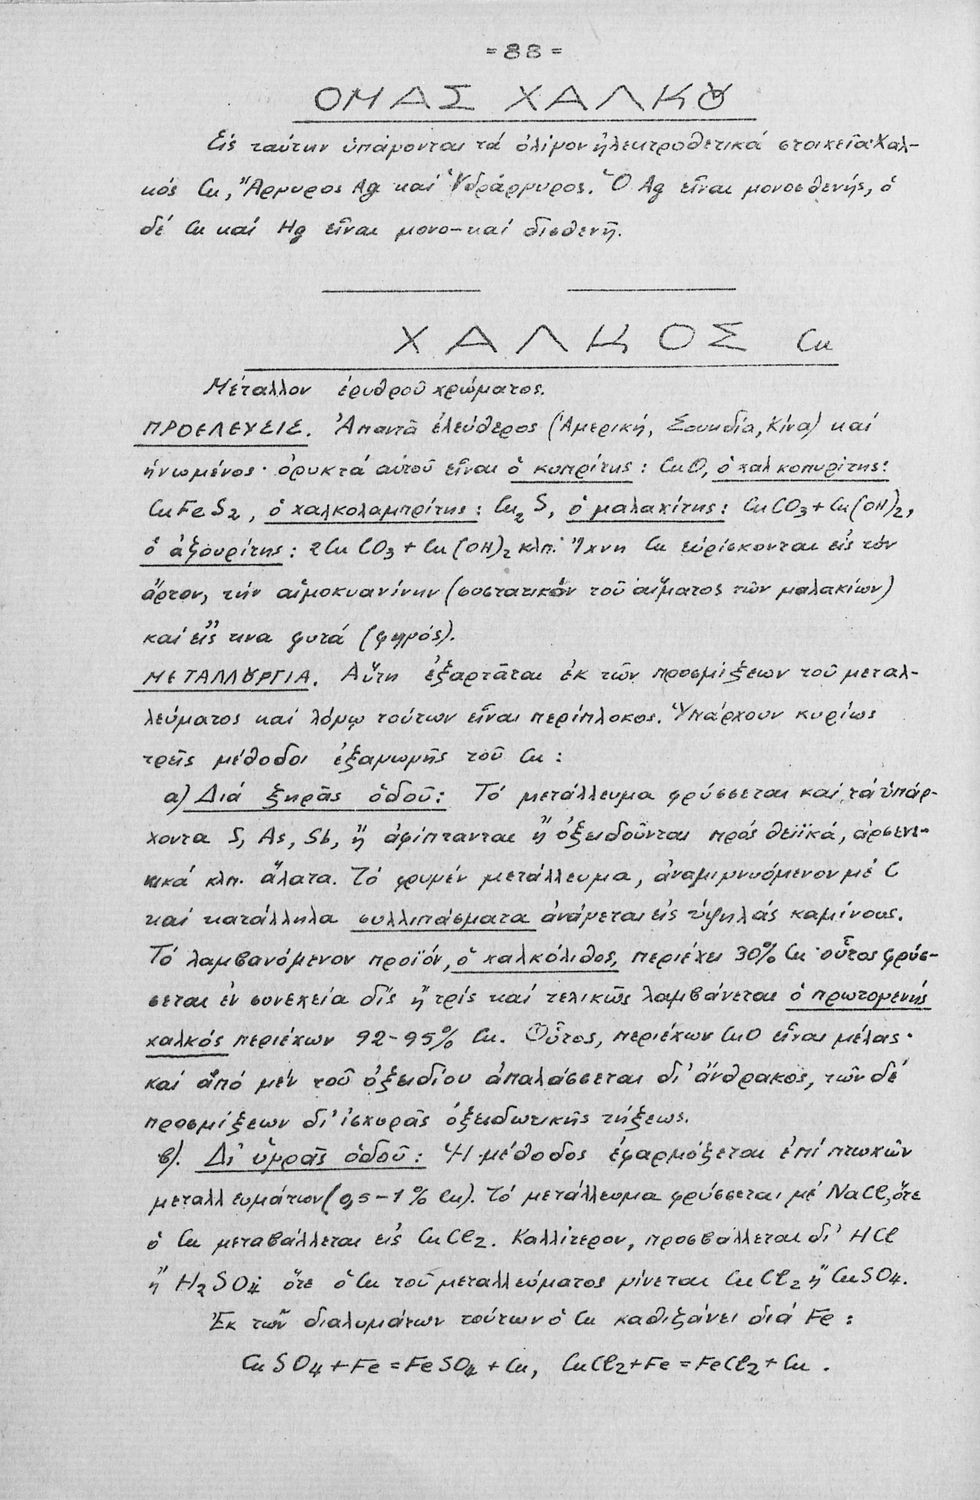 =88=
ΟΜΑΣ ΧΑΛΚȣ
Εἰς ταύτην ὑπάγονται τά ὀλίγον ἠλεκτροθετικά στοιχεῖα: Χαλ-
κός Cu, Ἄργυρος Ag καί Ὑδράργυρος. Ὁ Ag εἶναι μονοσθενής, ὁ
δέ Cu καί Hg εἶναι μονο-καί δισθενῆ.
ΧΑΛΚΟΣ Cu
Μέταλλον ἐρυθροῦ χρώματος.
ΠΡΟΕΛΕΥΣΙΣ. Ἀπαντᾶ ἐλεύθερος (Ἀμερική, Σουηδία, Κίνα) καί
ἡνωμένος· ὀρυκτά αὐτοῦ εἶναι ὁ κυπρίτης: CuO, ὁ χαλκοπυρίτης:
CuFeS2, ὁ χαλκολαμπρίτης: Cu2S, ὁ μαλαχίτης: CuCO3+Cu(OH)2,
ὁ ἀζουρίτης: 2CuCO3+Cu(OH)2 κλπ. Ἴχνη Cu εὑρίσκονται εἰς τόν
ἄρτον, τήν αἱμοκυανίνην (συστατικόν τοῦ αἵματος τῶν μαλακίων)
καί εἴς τινα φυτά (φηγός).
ΜΕΤΑΛΛȣΡΓΙΑ. Αὕτη ἐξαρτᾶται ἐκ τῶν προσμίξεων τοῦ μεταλ-
λεύματος καί λόγω τούτων εἶναι περίπλοκος. Ὑπάρχουν κυρίως
τρεῖς μέθοδοι ἐξαγωγῆς τοῦ Cu:
α) Διά ξηρᾶς ὁδοῦ: Τό μετάλλευμα φρύσσεται καί τά ὑπάρ-
χοντα S, As, Sb, ἤ ἀφίπτανται ἤ ὀξειδοῦνται πρός θειϊκά, ἀρσενι-
κικά κλπ. ἅλατα. Τό φρυγέν μετάλλευμα, ἀναμιγνυόμενον μέ C
καί κατάλληλα συλλιπάσματα ἀνάγεται εἰς ὑψηλάς καμίνους.
Τό λαμβανόμενον προϊόν, ὁ χαλκόλιθος, περιέχει 30% Cu· οὗτος φρύσ-
σεται ἐν συνεχεία δίς ἤ τρίς καί τελικῶς λαμβάνεται ὁ πρωτογενής
χαλκός περιέχων 92-95% Cu. Οὗτος, περιέχων CuO εἶναι μέλας·
καί ἀπό μέν τοῦ ὀξειδίου ἀπαλάσσεται δι' ἄνθρακος, τῶν δέ
προσμίξεων δι' ἰσχυρᾶς ὀξειδωτικῆς τήξεως.
β). Δι' ὑγρᾶς ὁδοῦ: Ἡ μέθοδος ἐφαρμόζεται ἐπί πτωχῶν
μεταλλευμάτων (0,5-1% Cu). Τό μετάλλευμα φρύσσεται μέ NaCl, ὅτε
ὁ Cu μεταβάλλεται εἰς CuCl2. Καλλίτερον, προσβάλλεται δι' HCl
ἤ H2SO4 ὅτε ὁ Cu τοῦ μεταλλεύματος γίνεται CuCl2 ἤ CuSO4.
Ἐκ τῶν διαλυμάτων τούτων ὁ Cu καθιζάνει διά Fe:
CuSO4+Fe=FeSO4+Cu, CuCl2+Fe=FeCl2+Cu.